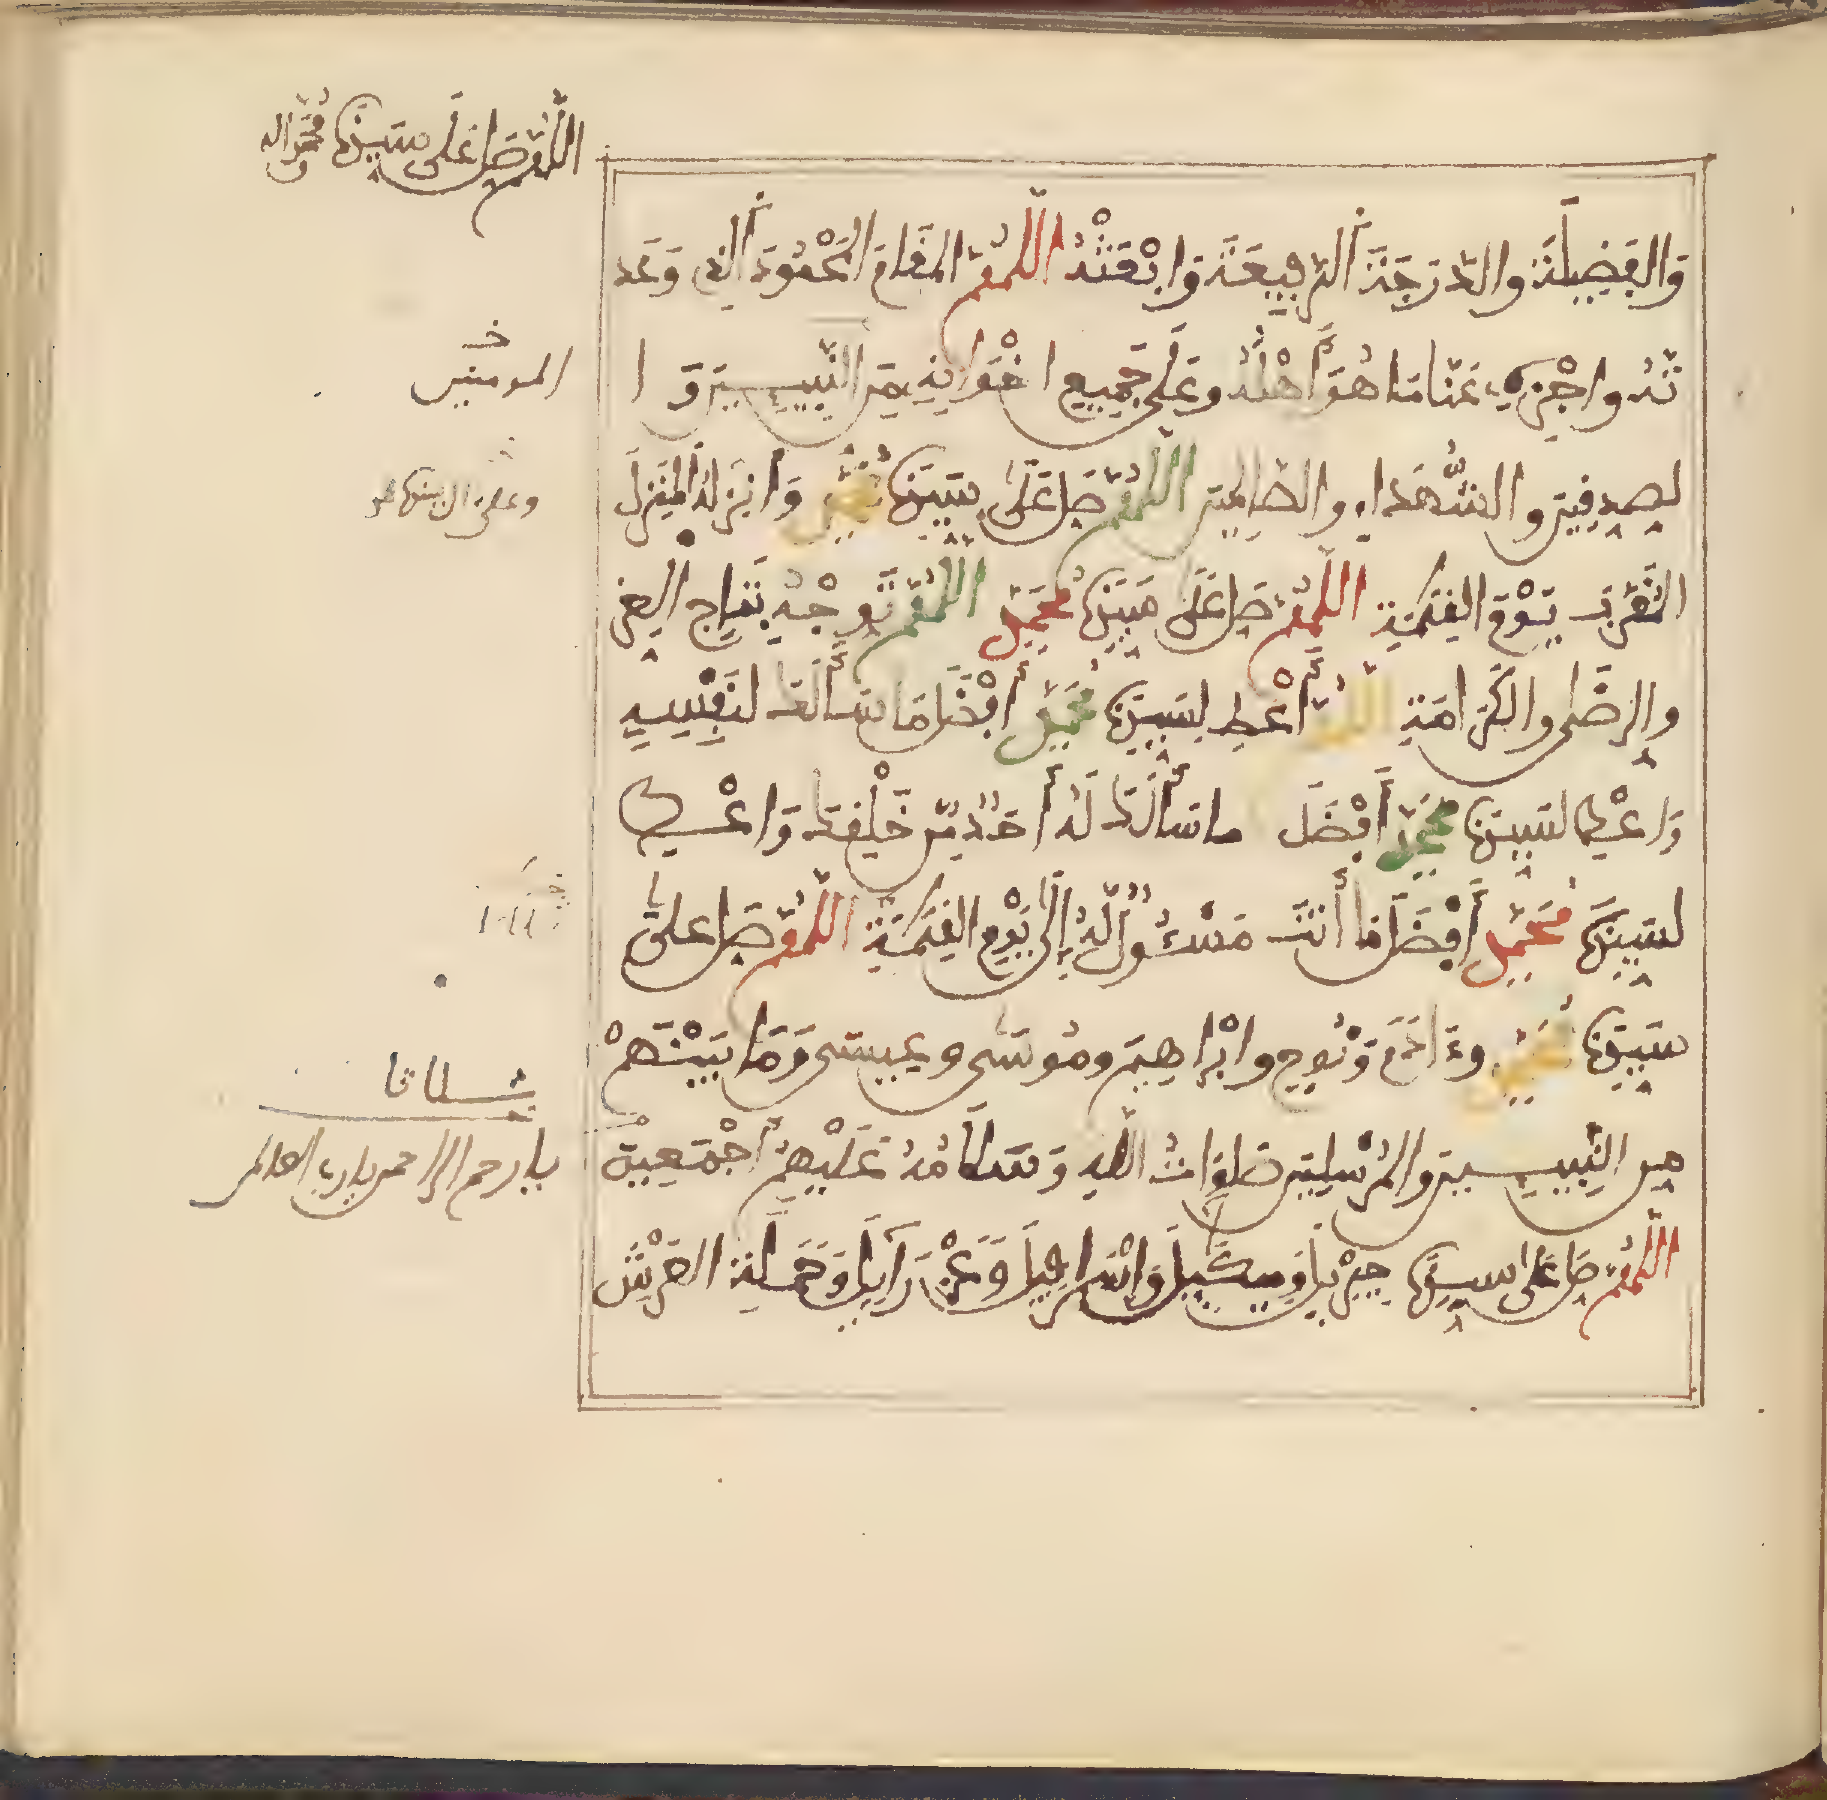 اللهم صل على سيدنا محمد واله
وَالْفَضِيلَةَ وَالدَّرَجَةَ الرَّفِيعَةَ وَابْعَثْهُ اللَّهُمَّ الْمَقَامَ الْمَحْمُودَ الَّذِي وَعَد
تَهُ وَاجْزِهِ عَنَّا مَا هُوَ أَهْلُهُ وَعَلَى جَمِيعِ اخْوَانِهِ مِنَ النَّبِيـِٕينَ وَ ا
المومنين
لصِّدِّيقِينَ وَالشُّهَدَاءِ وَالصَّالِحِينَ اللَّهُمَّ صَلِّ عَلَى سَيِّدِنَا مُحَمَّدٍ وَأَنْزِلْهُ الْمَنْزِلَ
وعلى ال
الْمُقَرَّبَ يَوْمَ الْقِيَمَةِ اللَّهُمَّ صَلِّ عَلَى سَيِّدِنَا مُحَمَّدٍ اللَّهُمَّ تَوِّجْهُ بِتَاجِ الْعِزِّ
وَالرِّضَى وَالْكَرَامَةِ اللَّهُمَّ أَعْطِ لِسَيِّدِنَا مُحَمَّدٍ أَفْضَلَ مَا سَأَلَكَ لِنَفْسِهِ
وَاعْطِ لِسَيِّدِنَا مُحَمَّدٍ أَفْضَلَ مَا سَأَلَكَ لَهُ أَحَدٌ مِّنْ خَلْقِكَ وَاعْطِ
لِسَيِّدِنَا مُحَمَّدٍ أَفْضَلَ مَا أَنْتَ مَسْئُولٌ لَّهُ إِلَى يَوْمِ الْقِيَمَةِ اللَّهُمَّ صَلِّ عَلَى
سَيِّدِنَا مُحَمَّدٍ وَءَادَمَ وَنُوحٍ وَابْرَاهِيمَ وَمُوسَى وَعِيسَى وَمَا بَيْنَهُمْ
مِنَ النَّبِيـِٕينَ وَالْمُرْسَلِينَ صَلَوَاتُ اللهِ وَسَلَامُهُ عَلَيْهِمْ أَجْمَعِينَ
ثلاثا
يا ارحم الراحمين يا رب العالمين
اللَّهُمَّ صَلِّ عَلَى سَيِّدِنَا جِبْرِيلَ وَمِيكَـٕيلَ وَإسْرَافِيلَ وَعَزْرَاـٕيلَ وَحَمَلَةِ الْعَرْشِ